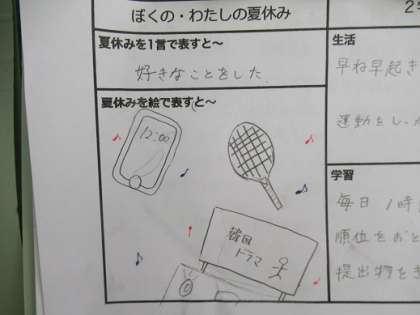 ぼくの・わたしの夏休み
夏休みを1言で表すと～
好きなことをした
夏休みを絵で表すと～
12:00
韓国
ドラマ
生活
早ね早起き
運動をし
学習
毎日1時
順位をおと
提出物を